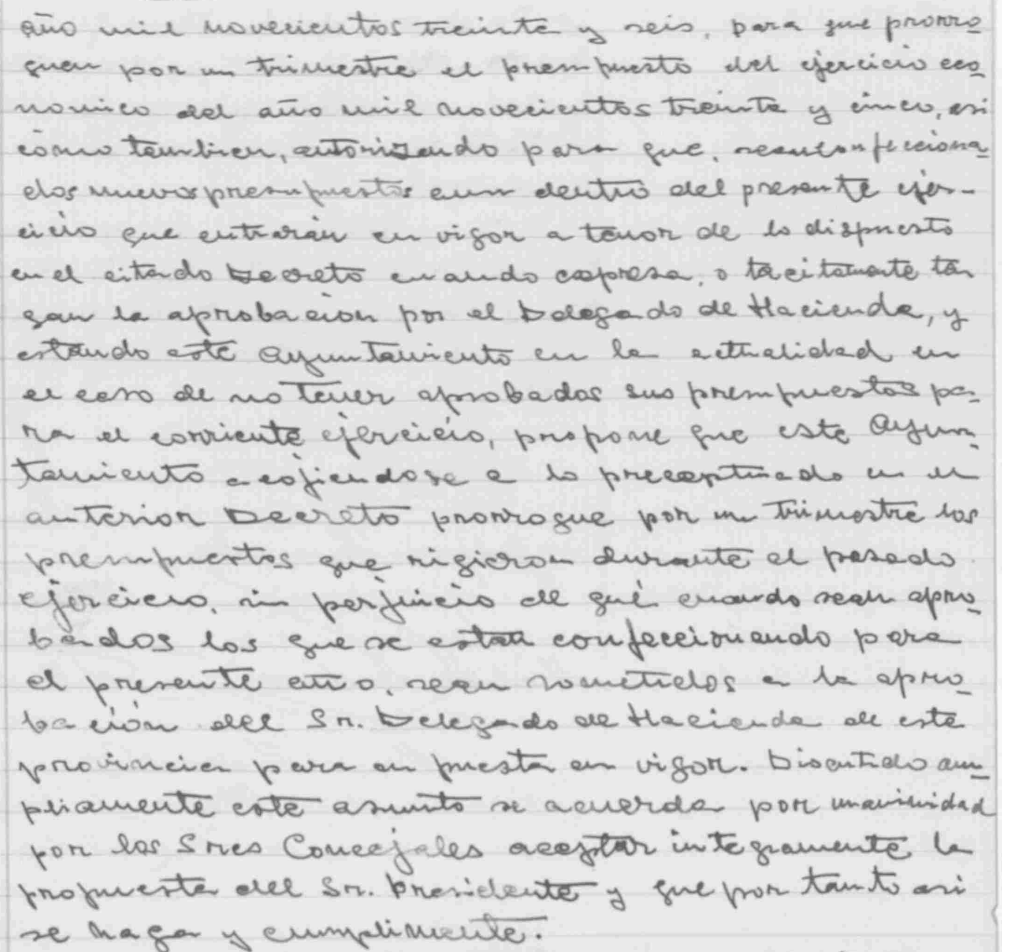 año mil novecientos treinta y seis, para que prorro
guen por un trimestre el prempuesto del ejercicio eco-
nomico del año mil novecientos treinta y cinco, asi
como tambien, autorizando para que, sean confecciona
dos nuevos prempuestos aun dentro del presente ejer-
cicio que entrarán en vigor a tenor de lo dispuesto
en el citado Decreto cuando expresa, o tacitamente ten
gan la aprobacion por el Delegado de Hacienda, y
estando este Ayuntamiento en la actualidad en
el caso de no tener aprobados sus prempuestos pa-
ra el corriente ejercicio, propone que este Ayun-
tamiento acojiendose a lo preceptuado en el
anterior Decreto prorrogue por un trimestre los
prempuestos que rigieron durante el pasado
ejercicio, sin perjuicio de que cuando sean apro-
bados los que se estan confeccionando para
el presente año, sean sometidos a la apro-
bación del Sr. Delegado de Hacienda de esta
provincia para su puesta en vigor. Discutido am-
pliamente este asunto se acuerda por unanimidad
por los Sres Concejales aceptar integramente la
propuesta del Sr. Presidente y que por tanto asi
se haga y cumplimente.